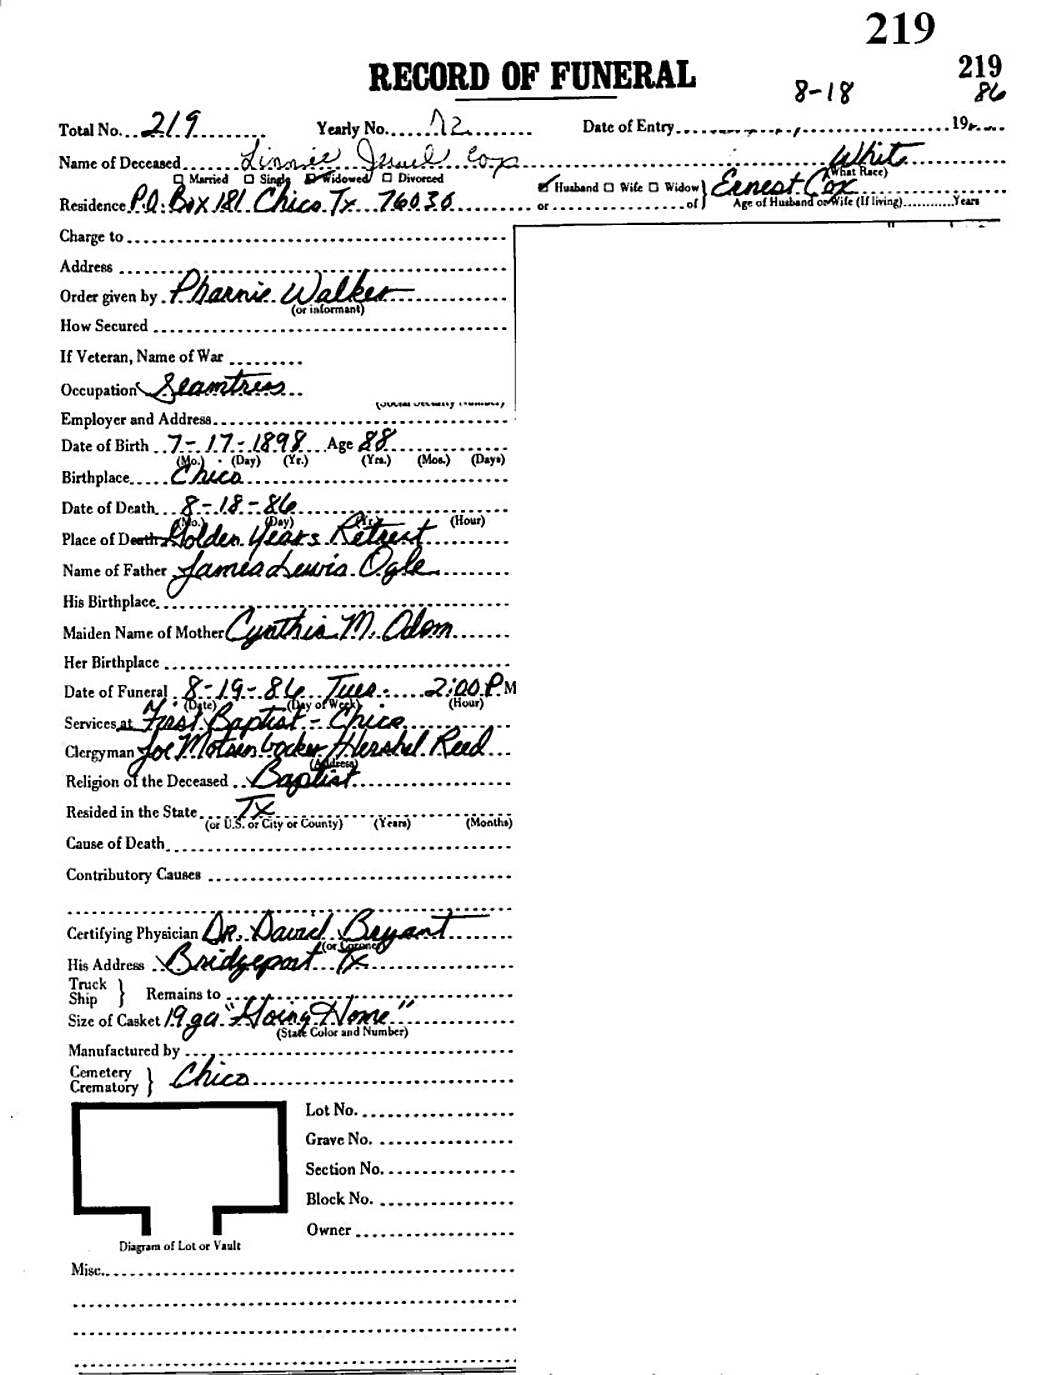 219
RECORD OF FUNERAL 219
8-18 86
Total No. 219 Yearly No. 72 Date of Entry 19
Name of Deceased Linnie Jewel Cox White
☐ Married ☐ Single ☑ Widowed ☐ Divorced (What Race)
Residence P.O. Box 181 Chico Tx 76030 ☑ Husband ☐ Wife ☐ Widow } Ernest Cox
or of Age of Husband or Wife (If living) Years
Charge to
Address
Order given by Pharnie Walker
(or informant)
How Secured
If Veteran, Name of War
Occupation Seamtress
(Social Security Number)
Employer and Address
Date of Birth 7-17-1898 Age 88
(Mo.) (Day) (Yr.) (Yrs.) (Mos.) (Days)
Birthplace Chico
Date of Death 8-18-86
(Mo.) (Day) (Yr.) (Hour)
Place of Death Golden Years Retreat
Name of Father James Lewis Ogle
His Birthplace
Maiden Name of Mother Cynthia M. Odom
Her Birthplace
Date of Funeral 8-19-86 Tues. 2:00 P M
(Date) (Day of Week) (Hour)
Services at First Baptist - Chico
Clergyman Joe Motsenbocker Hershel Reed
(Address)
Religion of the Deceased Baptist
Resided in the State Tx
(or U.S. or City or County) (Years) (Months)
Cause of Death
Contributory Causes
Certifying Physician DR. David Bryant
(or Coroner)
His Address Bridgeport Tx
Truck
Ship } Remains to
Size of Casket 19 ga "Going Home"
(State Color and Number)
Manufactured by
Cemetery
Crematory } Chico
Lot No.
Grave No.
Section No.
Block No.
Owner
Diagram of Lot or Vault
Misc.